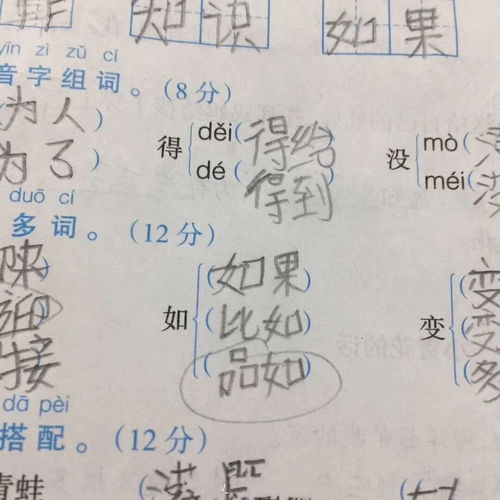 知识 如果
yīn zì zǔ cí
音字组词。(8分)
(为人)
为了)
得 děi(得给)
dé(得到)
没 mò(
méi(
duō cí
多词。(12分)
如 (如果)
(比如)
(品如)
变 (变
(变
(多
接
dā pèi
搭配。(12分)
青蛙